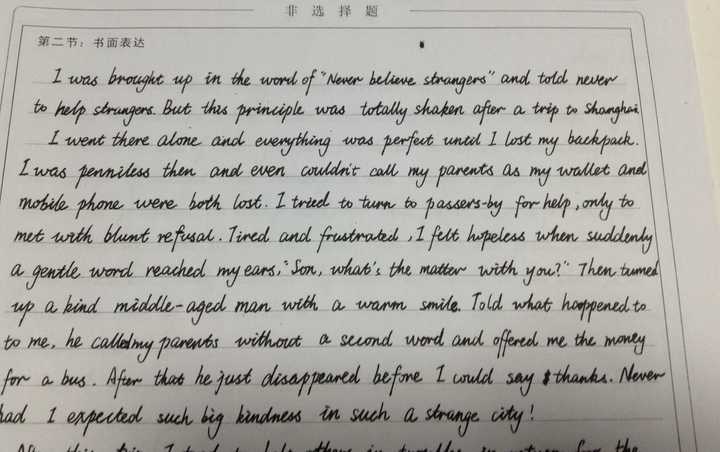 非选择题
第二节：书面表达
I was brought up in the word of "Never believe strangers" and told never
to help strangers. But this principle was totally shaken after a trip to Shanghai.
I went there alone and everything was perfect until I lost my backpack.
I was penniless then and even couldn't call my parents as my wallet and
mobile phone were both lost. I tried to turn to passers-by for help, only to
met with blunt refusal. Tired and frustrated, I felt hopeless when suddenly
a gentle word reached my ears, "Son, what's the matter with you?" Then turned
up a kind middle-aged man with a warm smile. Told what happened to
to me, he called my parents without a second word and offered me the money
for a bus. After that he just disappeared before I could say thanks. Never
had I expected such big kindness in such a strange city!